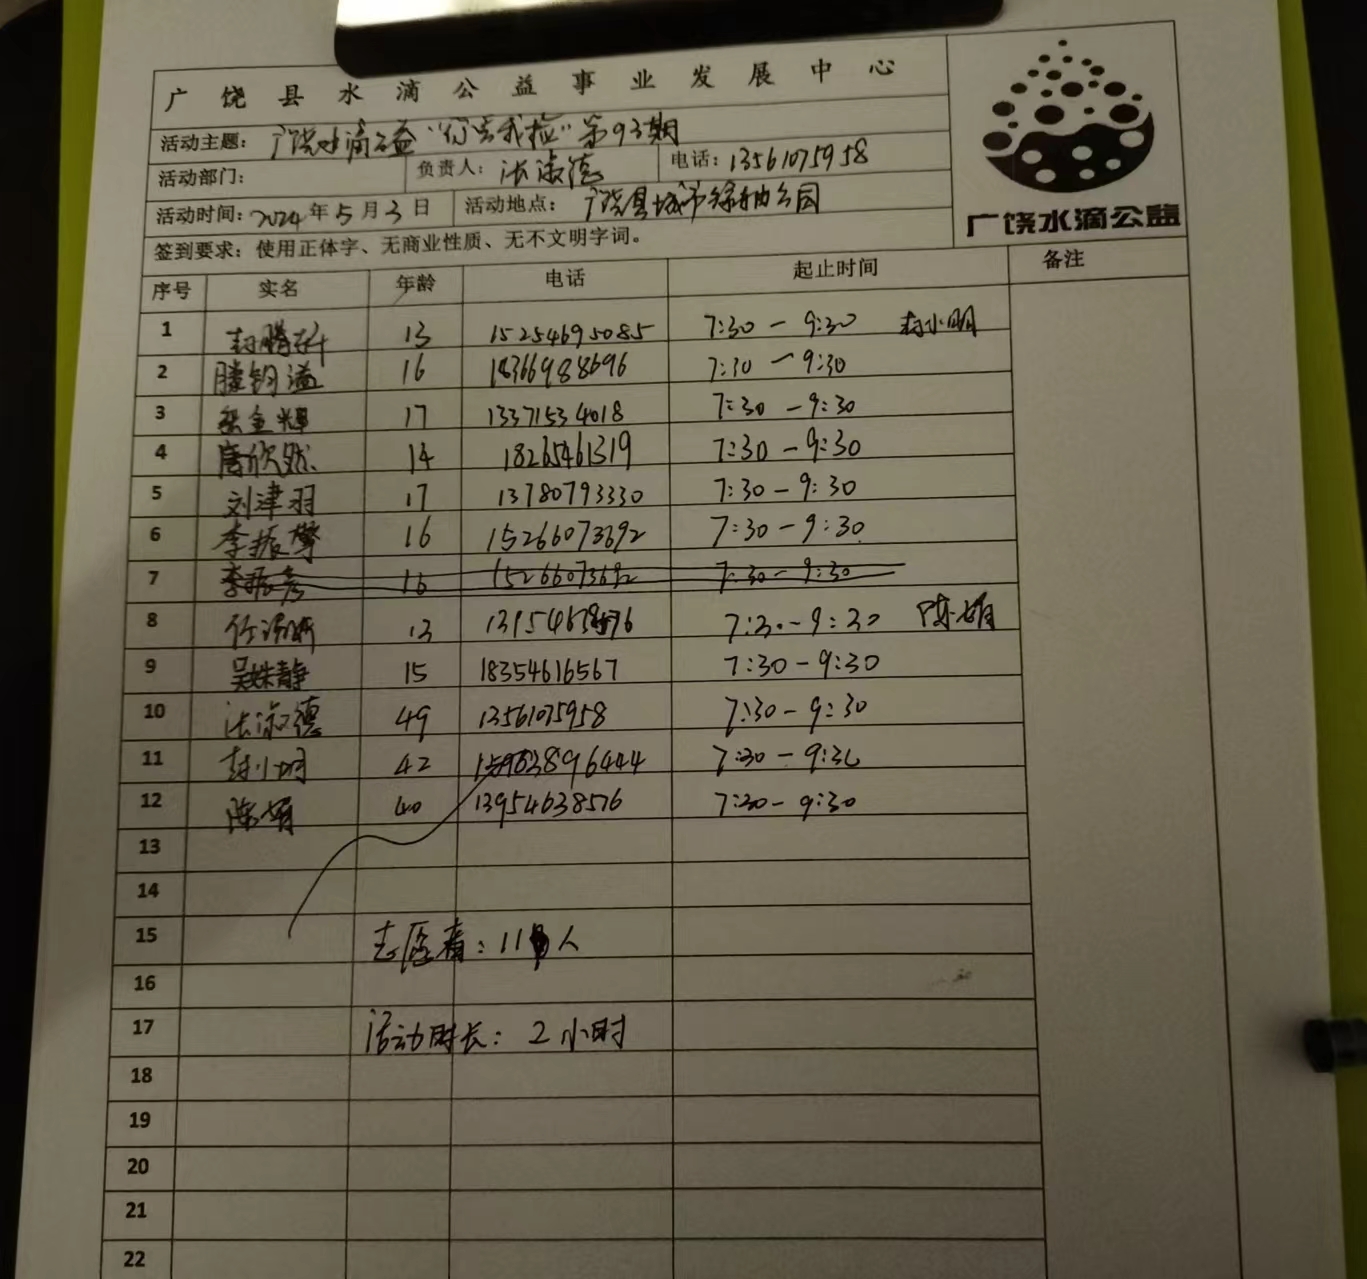 广饶县水滴公益事业发展中心
活动主题：广饶水滴公益"你丢我捡"第93期
活动部门： 负责人：张淑德 电话：13561075958
活动时间：2024年5月3日 活动地点：广饶县城市绿轴公园
广饶水滴公益
签到要求：使用正体字、无商业性质、无不文明字词。
序号 实名 年龄 电话 起止时间 备注
1 封腾轩 13 15254695085 7:30－9:30 封小明
2 滕钧溢 16 18366988696 7:30－9:30
3 金辉 17 13371534018 7:30－9:30
4 唐欣然 14 18265461319 7:30－9:30
5 刘津羽 17 13780793330 7:30－9:30
6 李振擎 16 15266073692 7:30－9:30
7 李振 16 15266073692 7:30－9:30
8 任 13 7:30－9:30 陈娟
9 吴姝静 15 18354616567 7:30－9:30
10 张淑德 49 13561075958 7:30－9:30
11 封小明 42 7:30－9:30
12 陈娟 40 13954638576 7:30－9:30
13
14
15 志愿者：11人
16
17 活动时长：2小时
18
19
20
21
22